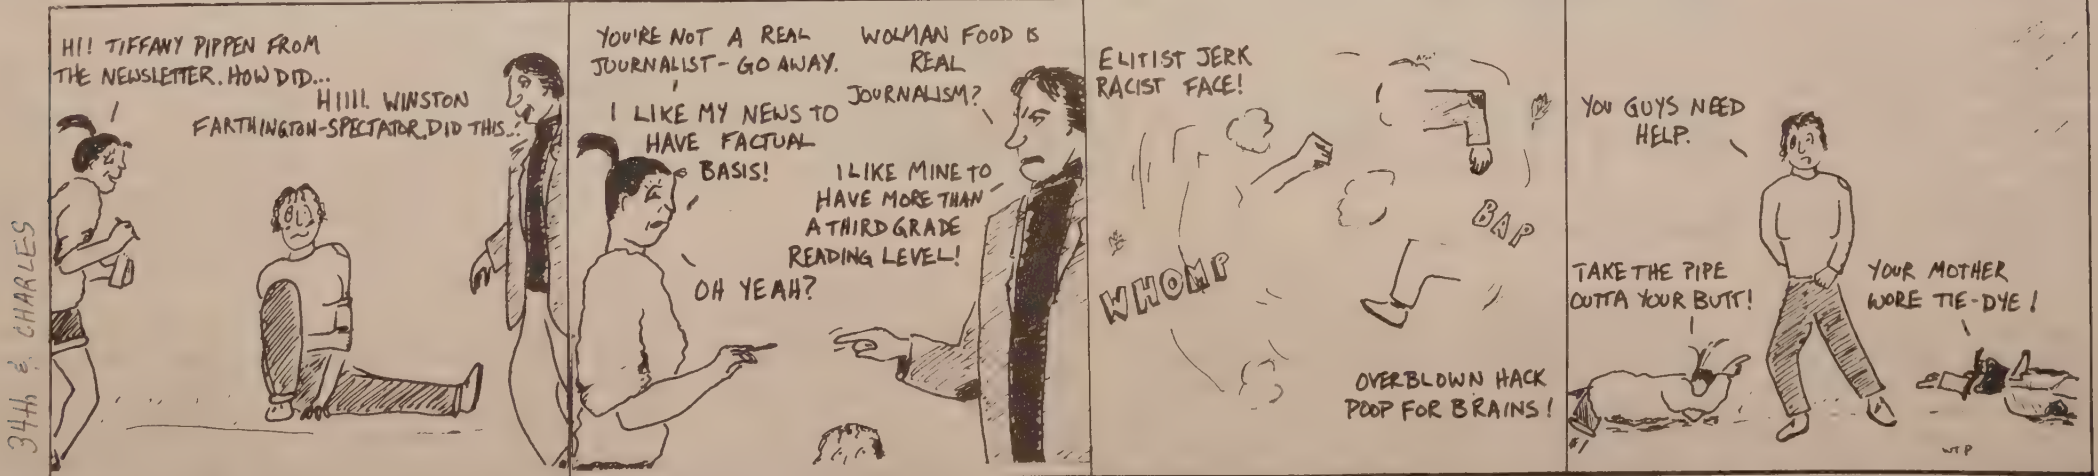 34th & CHARLES
HI! TIFFANY PIPPEN FROM
THE NEWSLETTER. HOW DID...
HIIII. WINSTON
FARTHINGTON-SPECTATOR. DID THIS...
YOU'RE NOT A REAL
JOURNALIST - GO AWAY.
WOLMAN FOOD IS
REAL
JOURNALISM?
I LIKE MY NEWS TO
HAVE FACTUAL
BASIS!
I LIKE MINE TO
HAVE MORE THAN
A THIRD GRADE
READING LEVEL!
OH YEAH?
ELITIST JERK
RACIST FACE!
WHOMP
BAP
OVERBLOWN HACK
POOP FOR BRAINS!
YOU GUYS NEED
HELP.
TAKE THE PIPE
OUTTA YOUR BUTT!
YOUR MOTHER
WORE TIE-DYE!
#1
WTP